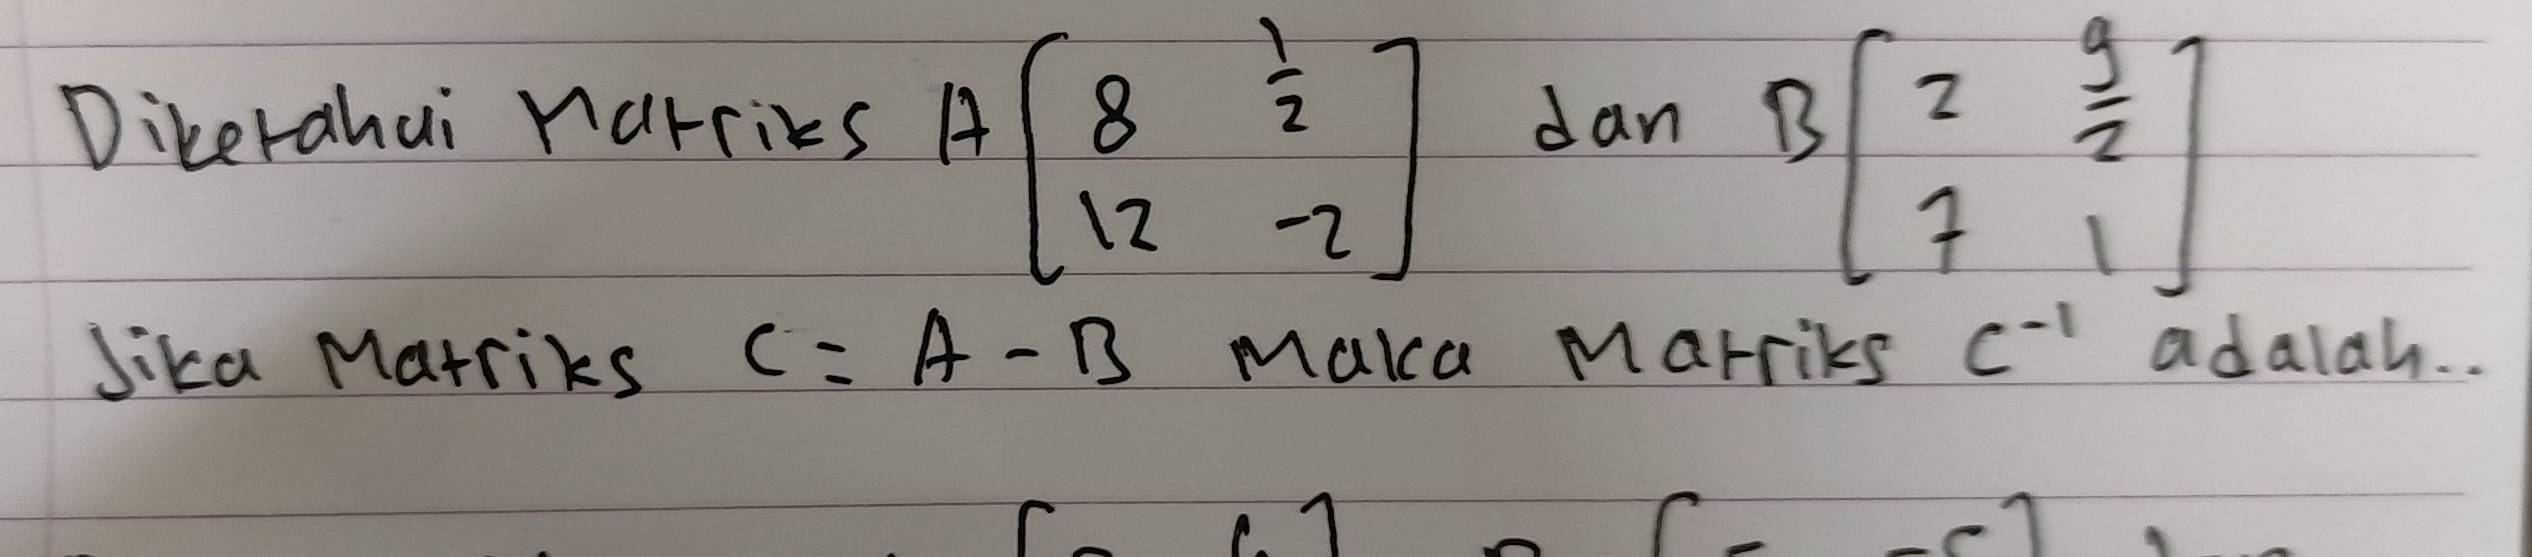 Diketahui Matriks A [8 1/2 12 -2] dan B [2 9/2 7 1]
Jika Matriks C = A - B Maka Matriks C⁻¹ adalah..